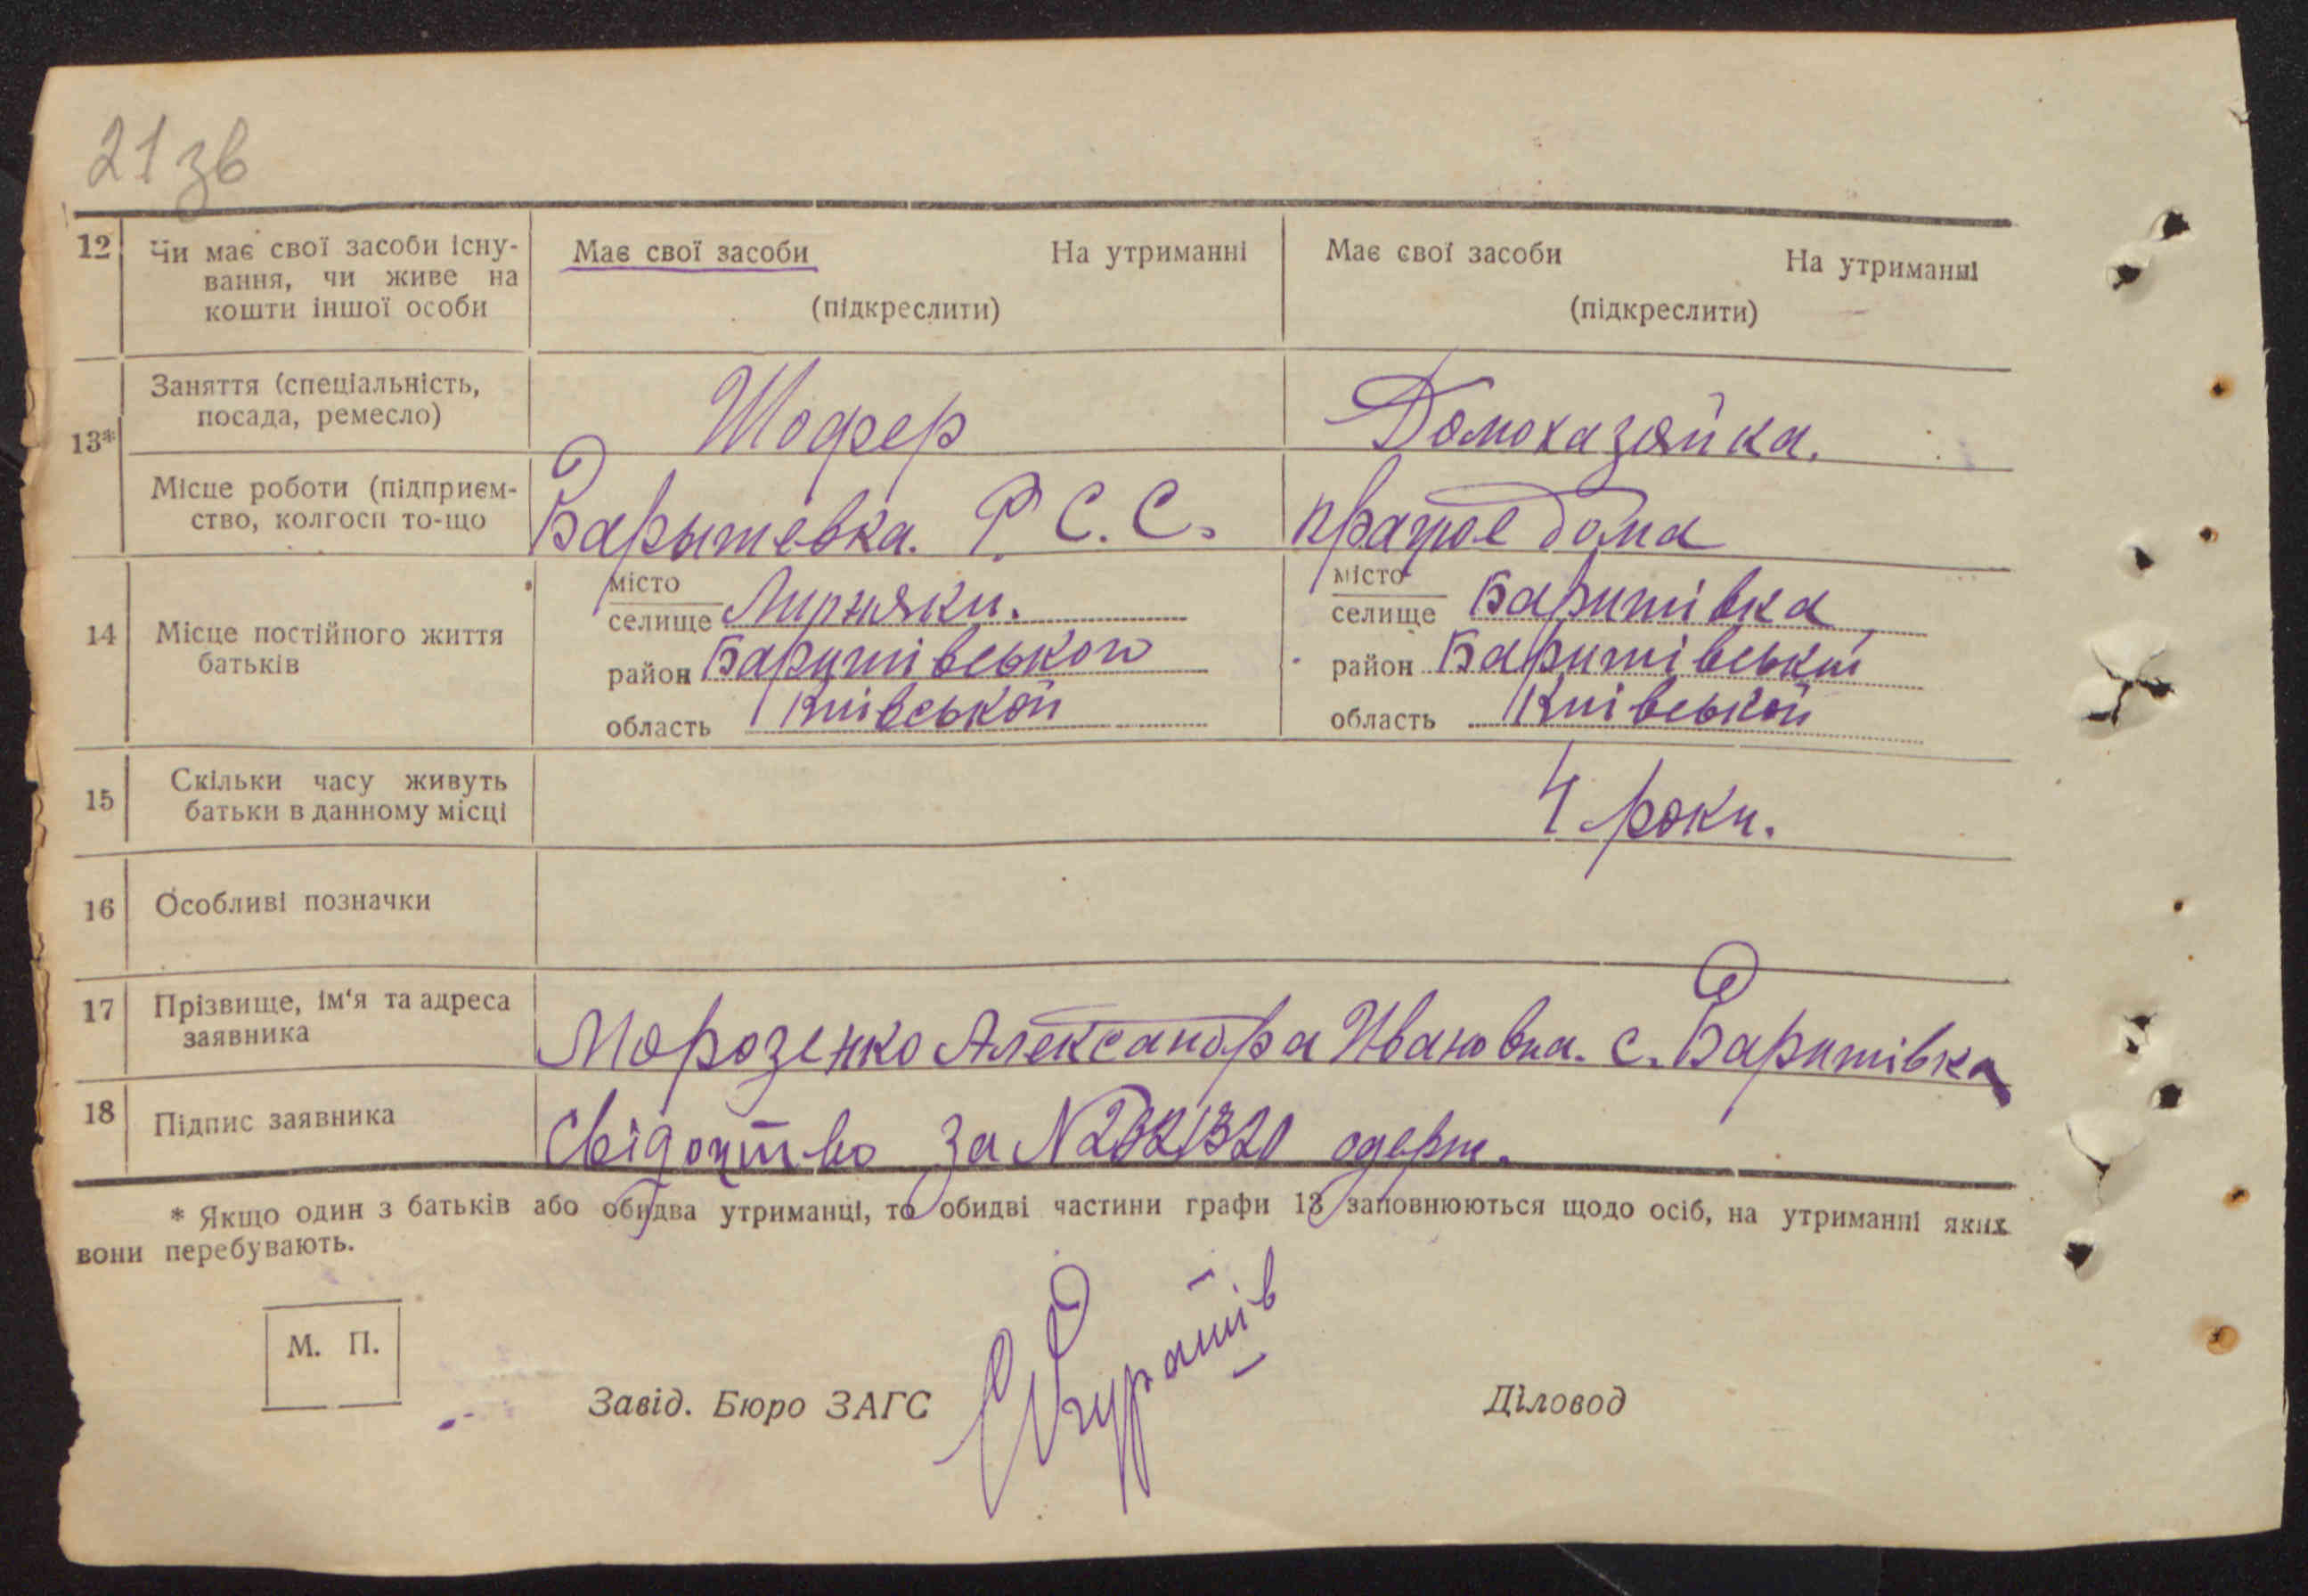 21 зв
12 Чи має свої засоби існу-
вання, чи живе на
кошти іншої особи
Має свої засоби На утриманні
(підкреслити)
Має свої засоби На утриманні
(підкреслити)
13*
Заняття (спеціальність,
посада, ремесло)
Шофер
Домохазяйка.
Місце роботи (підприєм-
ство, колгосп то-що
Барышевка. Р. С. С.
працює дома
14 Місце постійного життя
батьків
місто
селище
район Баришівського
область Київськой
місто
селище Баришівка
район Баришівський
область Київськой
15 Скільки часу живуть
батьки в данному місці
4 роки.
16 Особливі позначки
17 Прізвище, ім'я та адреса
заявника
Морозенко Александра Ивановна. с. Баришівка
18 Підпис заявника
Свідоцтво за N одерж.
* Якщо один з батьків або обидва утриманці, то обидві частини графи 13 заповнюються щодо осіб, на утриманні яких
вони перебувають.
М. П.
Завід. Бюро ЗАГС
Діловод